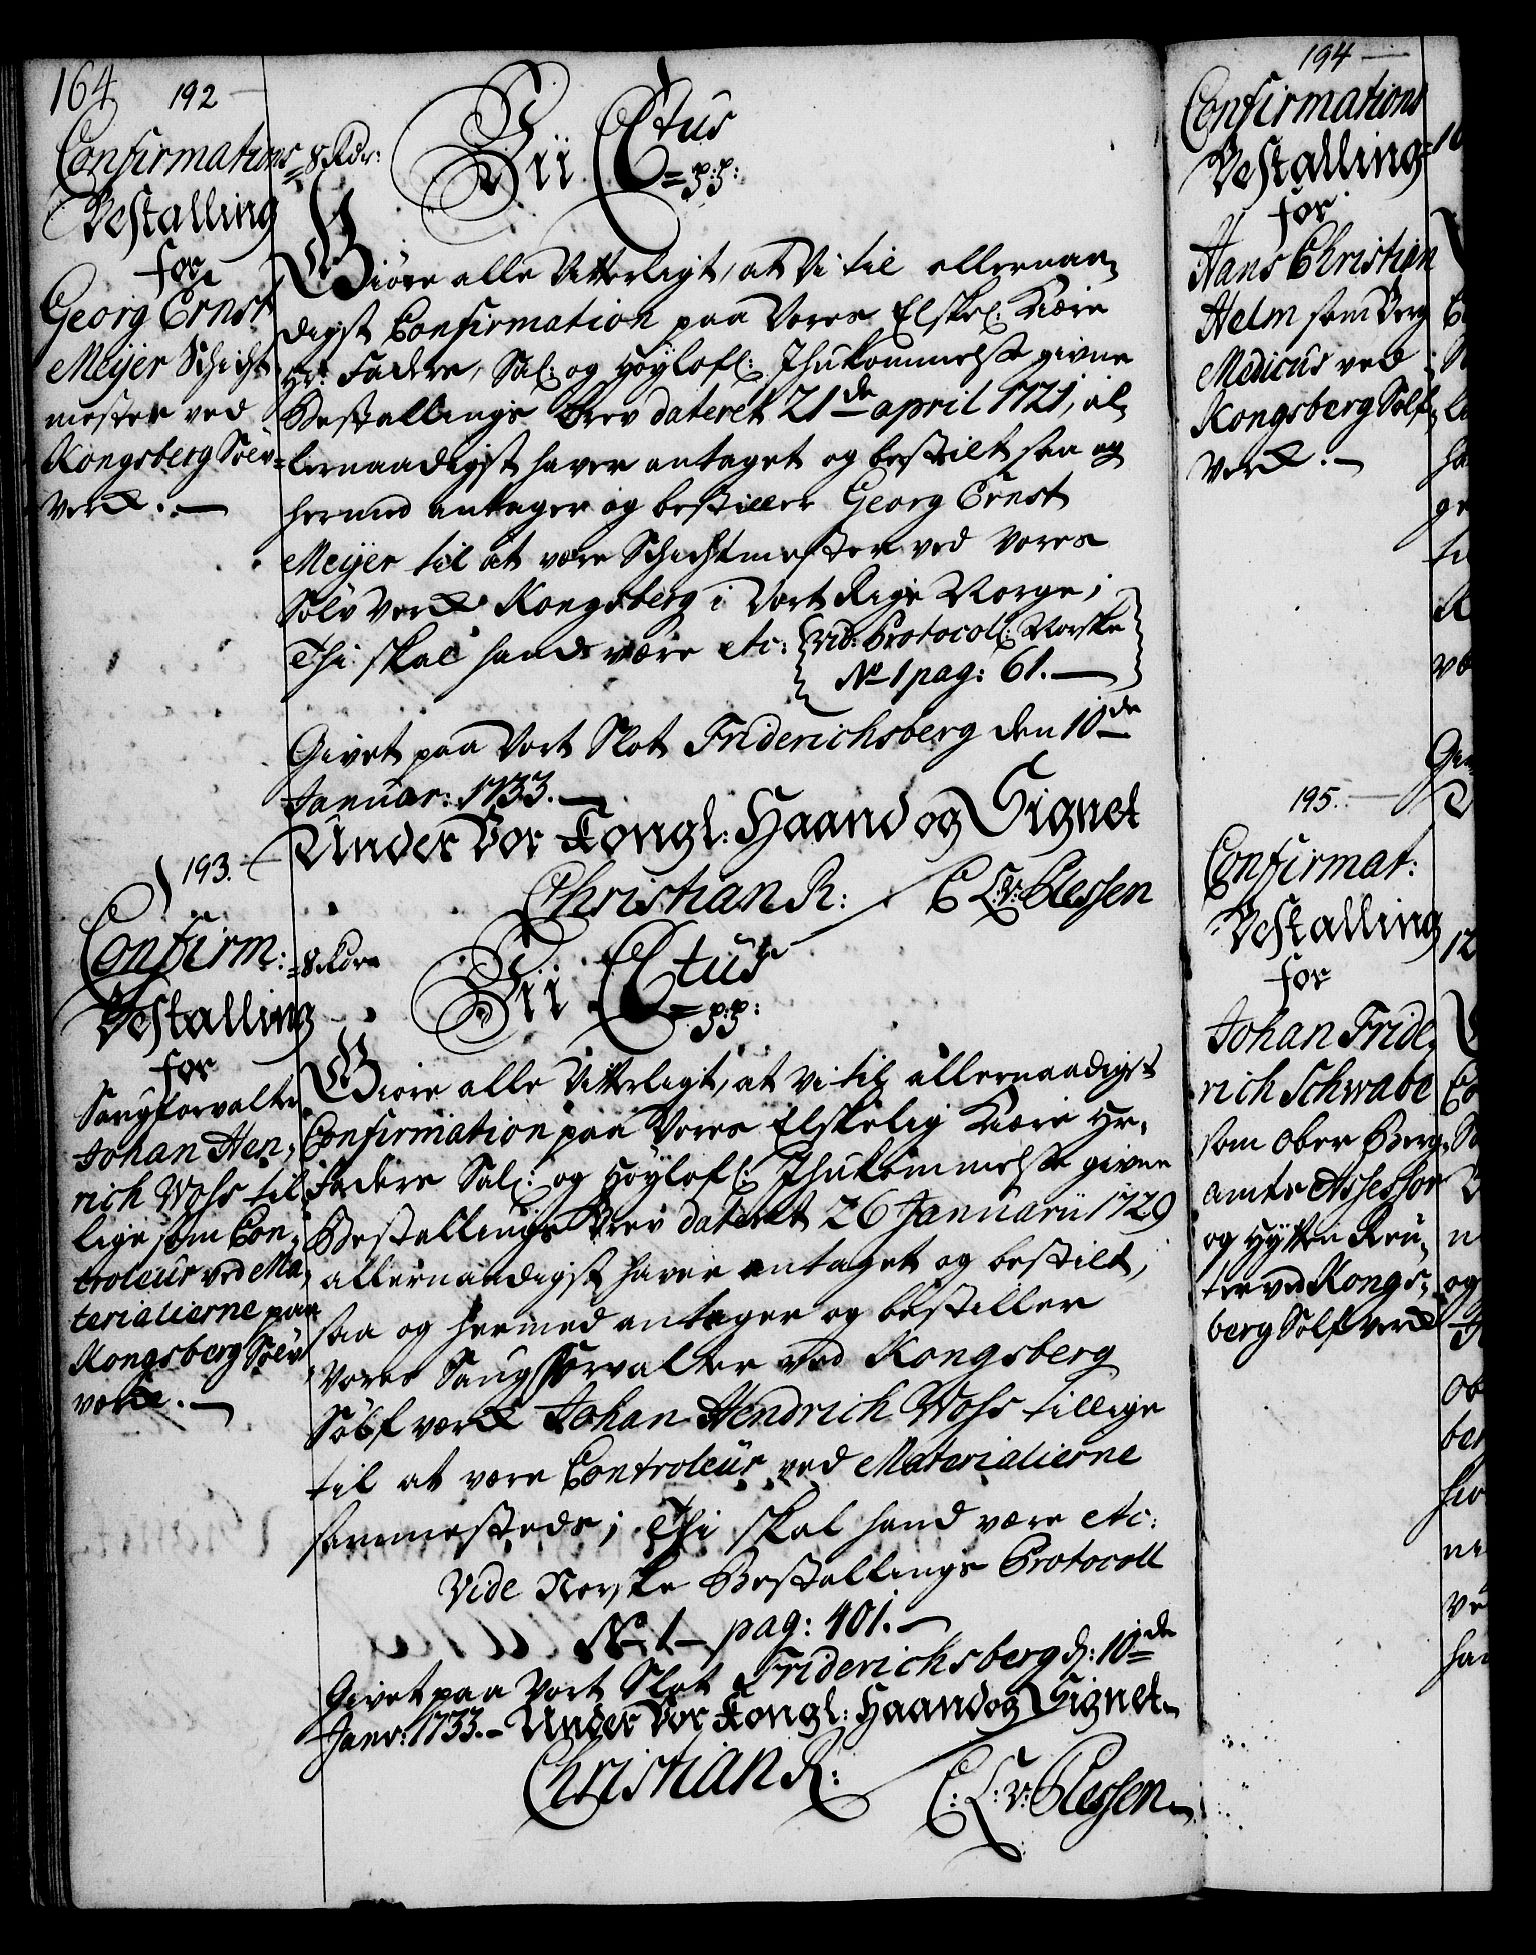 164
192
Confirmations
Bestalling
for
Georg Ernst
Meyer Schicht
mester ved
Kongsberg Sölv-
Verck.
8 Rdr:
Vii CStus
=p:p:
Giöre alle Vitterligt, at Vi til allernaa-
digst Confirmation paa Vores Elskel: Kiære
Hr: Faders, Sal: og Höylofl: Ihukommelse givne
Bestallings Brev dateret 21de april 1721, al-
lernaadigst haver antaget og bestilt saa og
hermed antager og bestiller Georg Ernst
Meyer til at være Schichtmester ved Vores
Sölv Verck Kongsberg i Vort Rige Norge;
Thi skal hand være etc: vid: Protocoll: Norske
No 1 pag: 61.
Givet paa Vort Slot Friderichsberg den 10de
Januar: 1733.
Under Vor Kongl: Haand og Signet
Christian R: C A: v: Plessen
193.
Confirm:
Bestalling
for
Saugforvalter
Johan Hen-
rich Wohs til
lige som Con-
troleur ved Ma-
terialierne paa
Kongsberg Sölv
verck.
8 Rdr
Vii CStus
=p:p:
Giöre alle Vitterligt, at Vi til allernaadigst
Confirmation paa Vores Elskelig Kiære Hr.
Faders Sal: og Höylofl: Ihukommelse givne
Bestallings Brev dateret 26 Januarii 1729
allernaadigst haver antaget og bestilt,
saa og hermed antager og bestiller
Vores Saugforvalter ved Kongsberg
Sölfverck Johan Hendrich Wohs tillige
til at være Controleur ved Materialierne
sammesteds; Thi skal hand være etc:
Vide Norske Bestallings Protocoll
No 1 pag: 401.
Givet paa Vort Slot Friderichsberg d: 10de
Janr: 1733. Under Vor Kongl: Haand og Signet
Christian R: C: A: v: Plessen
194
Confirmations
Bestalling
for
Hans Christian
Helm som Berg
Medicus ved
Kongsberg Sölf-
Verck.
195.
Confirmat:
Bestalling
for
Johan Fride-
rich Schwabe
som Ober Berg-
amts Assessor
og Hytte Reu-
ter ved Kongs-
berg Sölfverck